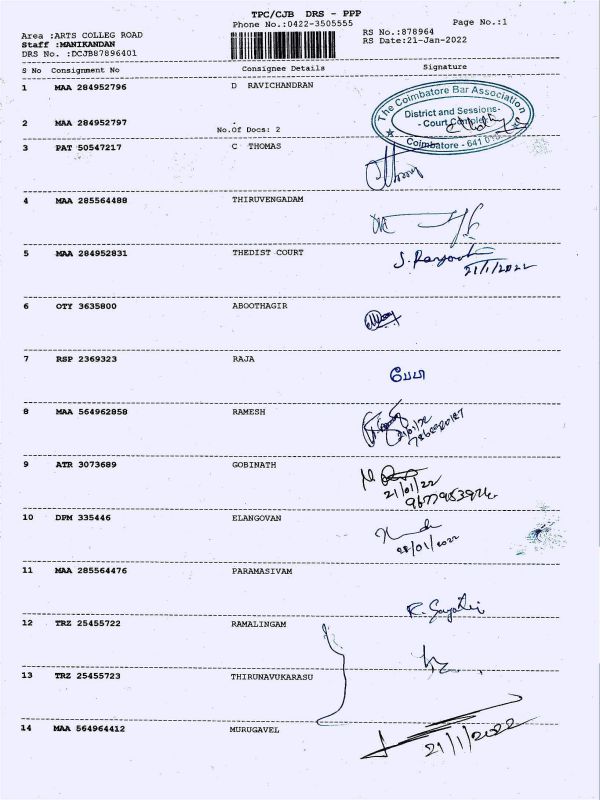 TPC/CJB DRS - PPP
Phone No.:0422-3505555
Page No.:1
Area :ARTS COLLEG ROAD
Staff :MANIKANDAN
DRS No. :DCJB87896401
RS No.:878964
RS Date:21-Jan-2022
S No Consignment No Consignee Details Signature
1 MAA 284952796 D RAVICHANDRAN
The Coimbatore Bar Association
District and Sessions-
- Court
Coimbatore - 641
2 MAA 284952797 .
No.Of Docs: 2
3 PAT 50547217 C THOMAS
4 MAA 285564488 THIRUVENGADAM
5 MAA 284952831 THEDIST COURT
21/1/2022
6 OTY 3635800 ABOOTHAGIR
7 RSP 2369323 RAJA
8 MAA 564962858 RAMESH
21/01/22
9 ATR 3073689 GOBINATH
21/01/22
10 DPM 335446 ELANGOVAN
11 MAA 285564476 PARAMASIVAM
12 TRZ 25455722 RAMALINGAM
13 TRZ 25455723 THIRUNAVUKARASU
14 MAA 564964412 MURUGAVEL
21/1/2022